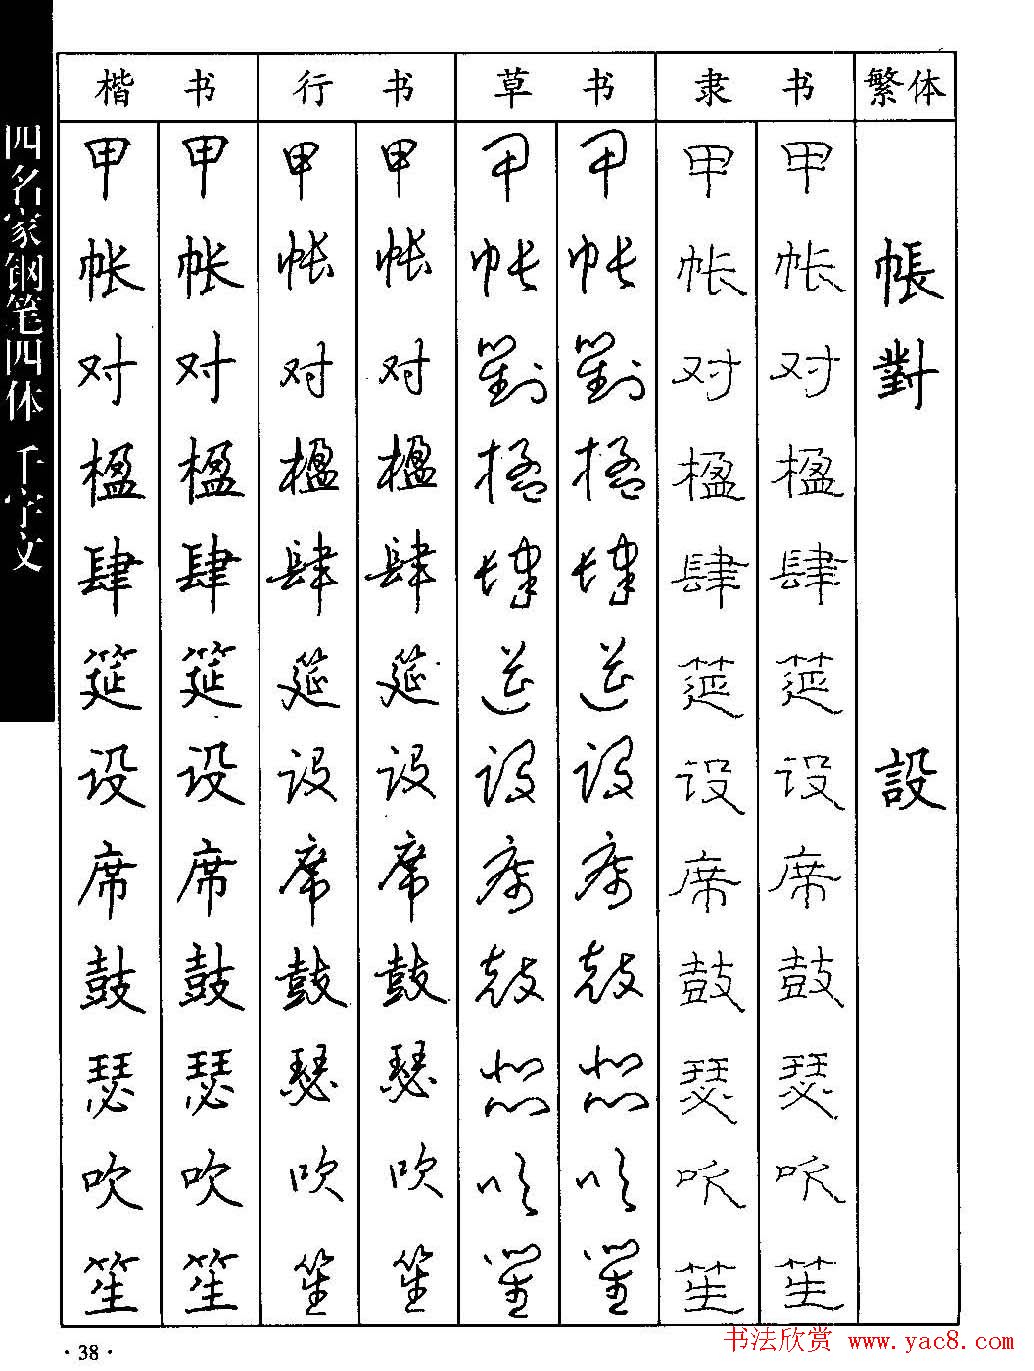 四名家钢笔四体 千字文
楷书 行书 草书 隶书 繁体
甲 甲 甲 甲 甲 甲 甲 甲
帐 帐 帐 帐 帐 帐 帐 帐 帳
对 对 对 对 對 對 对 对 對
楹 楹 楹 楹 楹 楹 楹 楹
肆 肆 肆 肆 肆 肆 肆 肆
筵 筵 筵 筵 筵 筵 筵 筵
设 设 设 设 设 设 设 设 設
席 席 席 席 席 席 席 席
鼓 鼓 鼓 鼓 鼓 鼓 鼓 鼓
瑟 瑟 瑟 瑟 瑟 瑟 瑟 瑟
吹 吹 吹 吹 吹 吹 吹 吹
笙 笙 笙 笙 笙 笙 笙 笙
·38·
书法欣赏 www.yac8.com